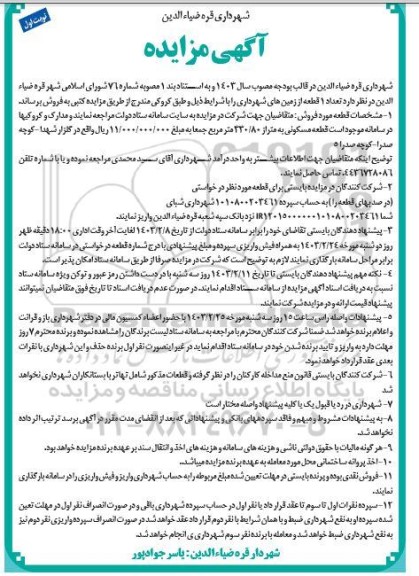 شهرداری قره ضیاءالدین
نوبت اول
آگهی مزایده
شهرداری قره ضیاء الدین در قالب بودجه مصوب سال ۱۴۰۳ و به استناد بند ۱ مصوبه شماره ۷۶ شورای اسلامی شهر قره ضیاء
الدین در نظر دارد تعداد ۱ قطعه از زمین های شهرداری را با شرایط ذیل و طبق کروکی مندرج از طریق مزایده کتبی به فروش برساند.
۱- مشخصات قطعه مورد فروش: متقاضیان جهت شرکت در مزایده به سایت سامانه ستاد دولت مراجعه نمایند و مدارک و کروکیها
در سامانه موجود است قطعه مسکونی به متراژ ۳۳۰/۸۰ متر مربع جمعا به مبلغ ۱۱/۰۰۰/۰۰۰/۰۰۰ ریال واقع در گلزار شهدا - کوچه
صدرا - کوچه صدرا ۵
توضیح اینکه متقاضیان جهت اطلاعات بیشتر به واحد درآمد شهرداری آقای سید محمدی مراجعه نموده و یا با شماره تلفن
۰۴۴۳۶۷۲۸۰۸۶ تماس حاصل نمایند.
۲- شرکت کنندگان در مزایده بایستی برای قطعه مورد نظر در خواستی
(در صد بهای قطعه را) به حساب سپرده ۱۰۱۰۸۰۰۲۰۳۴۶۱ شهرداری شبای
شما نزد بانک سپه شعبه قره ضیاء الدین واریز نمایند.
۳- پیشنهاد دهندگان بایستی تقاضای خود را برابر سامانه ستاد دولت از تاریخ ۱۴۰۳/۲/۸ لغایت آخر وقت اداری ۱۸:۰۰ دقیقه ظهر
روز دو شنبه مورخه ۱۴۰۳/۲/۲۴ به همراه فیش واریزی سپرده و مبلغ پیشنهادی با درج شماره قطعه در خواستی در سامانه ستاد دولت
برابر مراحل سامانه بار گذاری نمایند لازم به توضیح است که شرکت در مزایده صرفا از طریق سامانه ستاد امکان پذیر است.
۴- نکته مهم پیشنهاد دهندگان بایستی تا تاریخ ۱۴۰۳/۲/۱۱ روز سه شنبه با در دست داشتن رمز عبور و توکن ویژه سامانه ستاد
نسبت به دریافت اسناد آگهی مزایده از سامانه ستاد اقدام نمایند. در صورت عدم دریافت اسناد تا تاریخ فوق متقاضیان نمیتوانند
پیشنهاد قیمت ارائه و در مزایده شرکت نمایند.
۵- پیشنهادات واصله راس ساعت ۱۵ روز سه شنبه مورخه ۱۴۰۳/۲/۲۵ با حضور اعضاء کمسیون مالی در دفتر شهرداری باز و قرائت
و اعلام برنده خواهد شد ضمنا شرکت کنندگان محترم با مراجعه به سامانه ستاد لیست برندگان را مشاهده نموده و برنده محترم ۷ روز
مهلت دارد به واریز و تایید برنده شدن خود در سامانه ستاد اقدام نماید در غیر اینصورت نفر اول برنده حذف و این شهرداری با نفرات
بعدی عقد قرارداد خواهد نمود.
۶- شرکت کنندگان بایستی قانون منع مداخله کارکنان را در نظر گرفته و قطعات مذکور شامل تهاتر با بستانکاران شهرداری نخواهد
شد
۷- شهرداری در رد یا قبول یک یا کلیه پیشنهاد واصله مختار است
۸- به پیشنهادات مشروط و مبهم و فاقد سپرده های بانکی و پیشنهاداتی که بعد از انقضای مدت مقرر در آگهی برسد ترتیب اثر داده
نخواهد شد.
۹- هر گونه مالیات یا حقوق دولتی ناشی و هزینه های سامانه و هزینه های اخذ و انتقال سند بر عهده برنده مزایده خواهد بود.
۱۰- اخذ پروانه ساختمانی محل مورد معامله به عهده برنده مزایده میباشد.
۱۱- فروش نقدی بوده و برنده بایستی در مهلت تعیین شده مبلغ مربوطه را به حساب شهرداری واریز و فیش واریزی را در سامانه بار گذاری
نمایند.
۱۲- سپرده نفرات اول تا سوم تا عقد قرار داد با نفر اول در حساب سپرده شهرداری باقی و در صورت انصراف نفر اول در مهلت تعین
شده سپرده او به نفع شهرداری ضبط و با همان شرایط با نفر دوم قرار داد عقد خواهد شد در صورت انصراف سپرده واریزی نفر دوم نیز
به نفع شهرداری ضبط خواهد شد و معامله با برنده نفر سوم شهرداری انجام خواهد شد.
شهردار قره ضیاءالدین: یاسر جوادپور